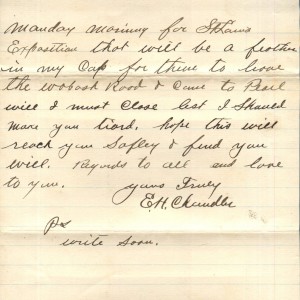 Monday morning for St Louis
Exposition that will be a feather
in my Cap for thim to leave
the wobash Road & Came to Paul
will I must Close lest I Should
make you tierd. hope this will
reach you Safley & find you
will. Regards to all and love
to you.
yours Truly
E.H. Chandler
Ps
write soon.